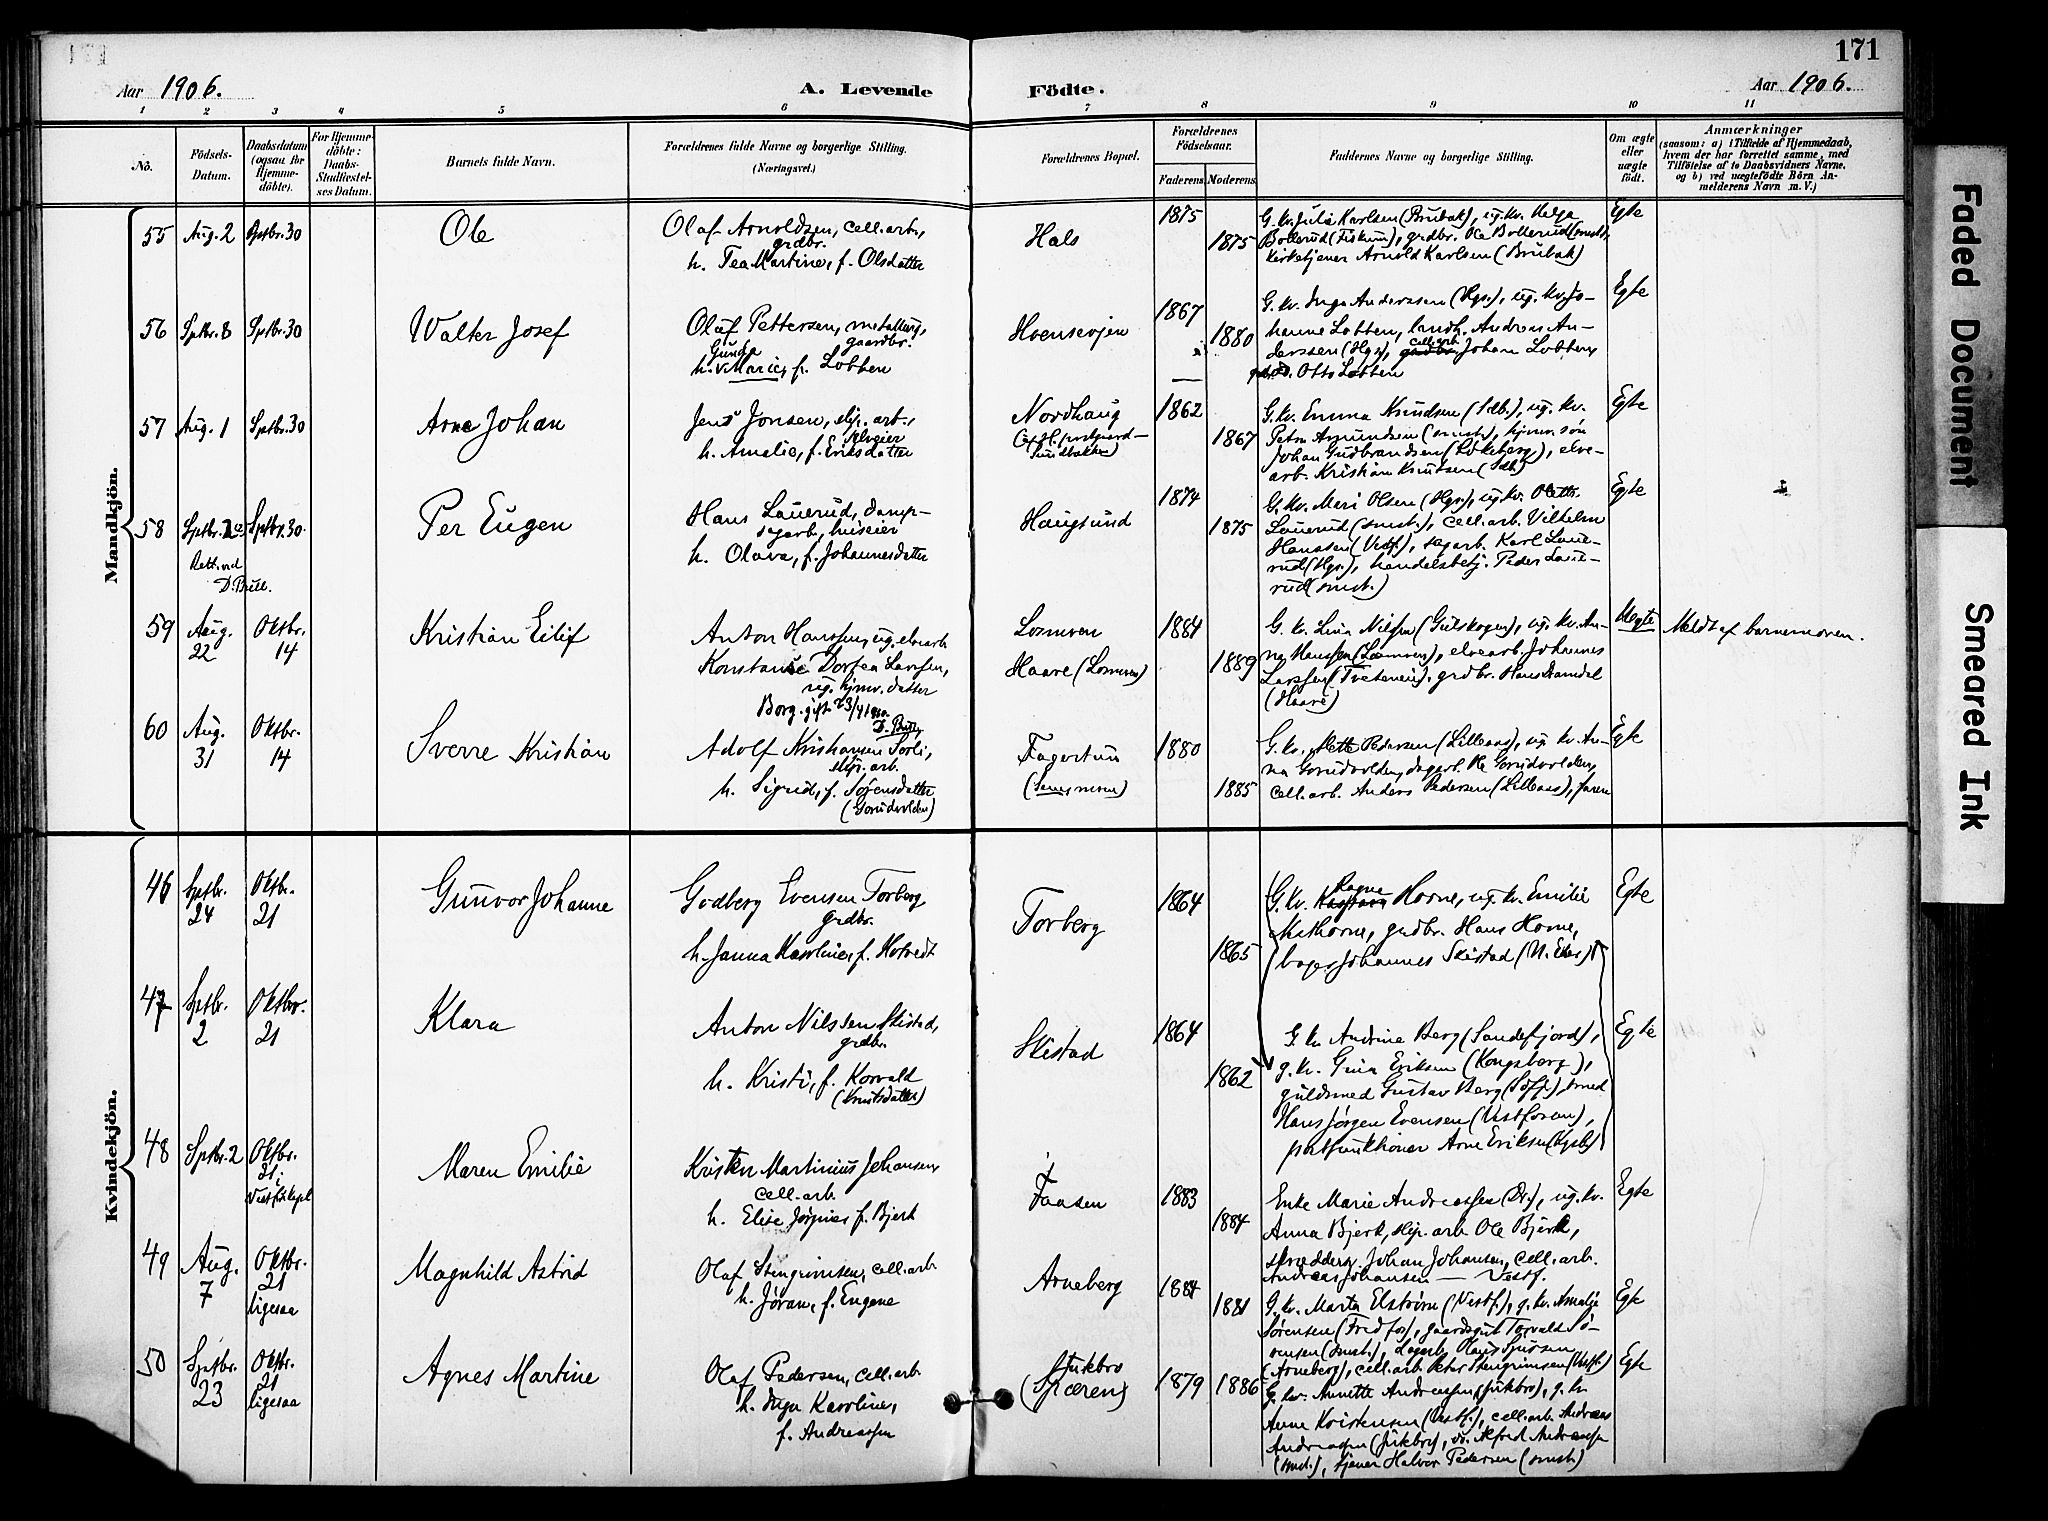 171
Aar 1906.
A. Levende Födte.
Aar 1906.
1 2 3 4 5 6 7 8 9 10 11
No.
Födsels-Datum.
Daabsdatum (ogsaa for Hjemme-döbte).
For Hjemme-döbte: Daabs-Stadfæstel-ses Datum.
Barnets fulde Navn.
Forældrenes fulde Navne og borgerlige Stilling. (Næringsvei.)
Forældrenes Bopæl.
Forældrenes Födselsaar.
Faderens. Moderens.
Faddernes Navne og borgerlige Stilling.
Om ægte eller uægte födt.
Anmærkninger
(saasom: a) i Tilfælde af Hjemmedaab, hvem der har forrettet samme, med Tilföielse af to Daabsvidners Navne, og b) ved uægtefödte Börn Anmelderens Navn m. V.)
Mandkjön.
55 Aug. 2 Sptbr. 30 Ole
Olaf Arnoldsen, cell.arb., grdbr.
h. Tea Martine, f. Olsdatter
Hals 1875 1875
G. kv. Julie Karlsen (Brubak), ug. kv. Helga
Bollerud (Fiskum), grdbr. Ole Bollerud (smst.),
kirketjener Arnold Karlsen (Brubak)
Egte
56 Sptbr. 8 Sptbr. 30 Walter Josef
Olaf Pettersen, gaardbr.
h. Gunda Marie, f. Lobben
Hoensevjen 1867 1880
G. kv. Inga Anderssen (Hgs.), ug. kv. Jo-
hanne Lobben, landh. Andreas An-
derssen (Hgs), cell.arb. Johan Lobben,
Otto Lobben
Egte
57 Aug. 1 Sptbr. 30 Arne Johan
Jens Jonsen, slip. arb.,
h. Amalie, f. Eriksdatter
Nordhaug 1862 1867
G. kv. Emma Knudsen (Sdb.), ug. kv.
Petra Amundsen (smst.), hjmv. søn
Johan Gudbrandsen (Lökeberg), elve-
arb. Kristian Knudsen (Sdb)
Egte
58 Sptbr. Sptbr. 30 Per Eugen
Rett. ved
D. Brill.
Hans Lauerud, damp-
sagarb., huseier
h. Olava, f. Johannesdatter
Haugsund 1874 1875
G. kv. Mari Olsen (Hgs), ug. kv. Olette
Lauerud (smst.), cell. arb. Vilhelm
Hanssen (Vestf.), sagarb. Karl Laue-
rud (Hgs), handelsbetj. Peder Laue-
rud (smst.)
Egte
59 Aug. 22 Oktbr. 14 Kristian Eilif
Anton Hanssen, ug. elvearb
Konstanse Dortea Larsen,
ug. hjmv. datter
Losmoen
Haare (Losmoen) 1884 1889
G. kv. Lina Nilsen (Gutskogen), ug. kv. An-
na Hanssen (Losmoen), elvearb. Johannes
Larssen (Tveteneie), grdbr. Hans Ramdal
(Haare)
Uegte
Meldt af barnemoren.
60 Aug. 31 Oktbr. 14 Sverre Kristian
Borg. gift
Adolf Kristiansen Sorli,
slip. arb.
h. Sigrid, f. Sörensdatter
(Gorudvolden)
Fagertun 1880 1885
G. kv. Mette Pedersen (Lilleaas), ug. kv. An-
na Gorudvolden, dagarb. Ole Gorudvolden,
cell. arb. Anders Pedersen (Lilleaas), faren
Egte
Kvindekjön.
46 Sptbr. 24 Oktbr. 21 Gunvor Johanne
Godberg Evensen Torberg
grdbr.
h. Janna Karoline, f. Hotvedt
Torberg 1864 1865
G. kv. Ragna Horne, ug. kv. Emilie
Horne, grdbr. Hans Horne,
bager Johannes Skistad (N. Eker)
Egte
47 Sptbr. 2 Oktbr. 21 Klara
Anton Nilssen Skistad,
grdbr.
h. Kristi, f. Korvald
(Knutsdatter)
Skistad 1864 1862
G. kv. Andrine Berg (Sandefjord),
g. k. Gina Eriksen (Kongsberg),
guldsmed Gustav Berg (Sdfj.), smed
Hans Jørgen Evensen (Vestfossen),
postfunktionær Arne Eriksen (Kgsb)
Egte
48 Sptbr. 2 Oktbr. 21 i Vestf. kapel Maren Emilie
Kristen Martinius Johansen,
cell.arb.
h. Elise Jørgine, f. Bjerk
Faasen 1883 1884
Enke Marie Andreassen (Dr.), ug. kv.
Anna Bjerk, slip. arb. Ole Bjerk,
skrædderg. Johan Johansen, cell. arb.
Andreas Johansen — Vestf.
Egte
49 Aug. 7 Oktbr. 21 ligesaa Magnhild Astrid
Olaf Stengrimsen, cell.arb.
h. Jøran, f. Eugene
Arneberg 1884 1881
G. kv. Marta Elström (Vestf.), g. kv. Amalie
Sørensen (Fredfos), gaardsgut Torvald Sö-
rensen (smst.), Hans
(Arneberg), cell. arb. Peter Stengrimsen (Vestf.)
Egte
50 Sptbr. 23 Oktbr. 21 ligesaa Agnes Martine
Olaf Pedersen, cell. arb.
h. Inga Karoline,
f. Andreassen
Jukbro
(Spæren) 1879 1886
G. kv. Annette Andreassen (Jukbro), g. kv
Anne Kristensen (Vestf.), cell. arb. Andreas
Andreassen (Jukbro), do. Alfred Andreassen
(smst.), tjener Halvor Pedersen (smst.)
Egte
Faded Document
Smeared Ink